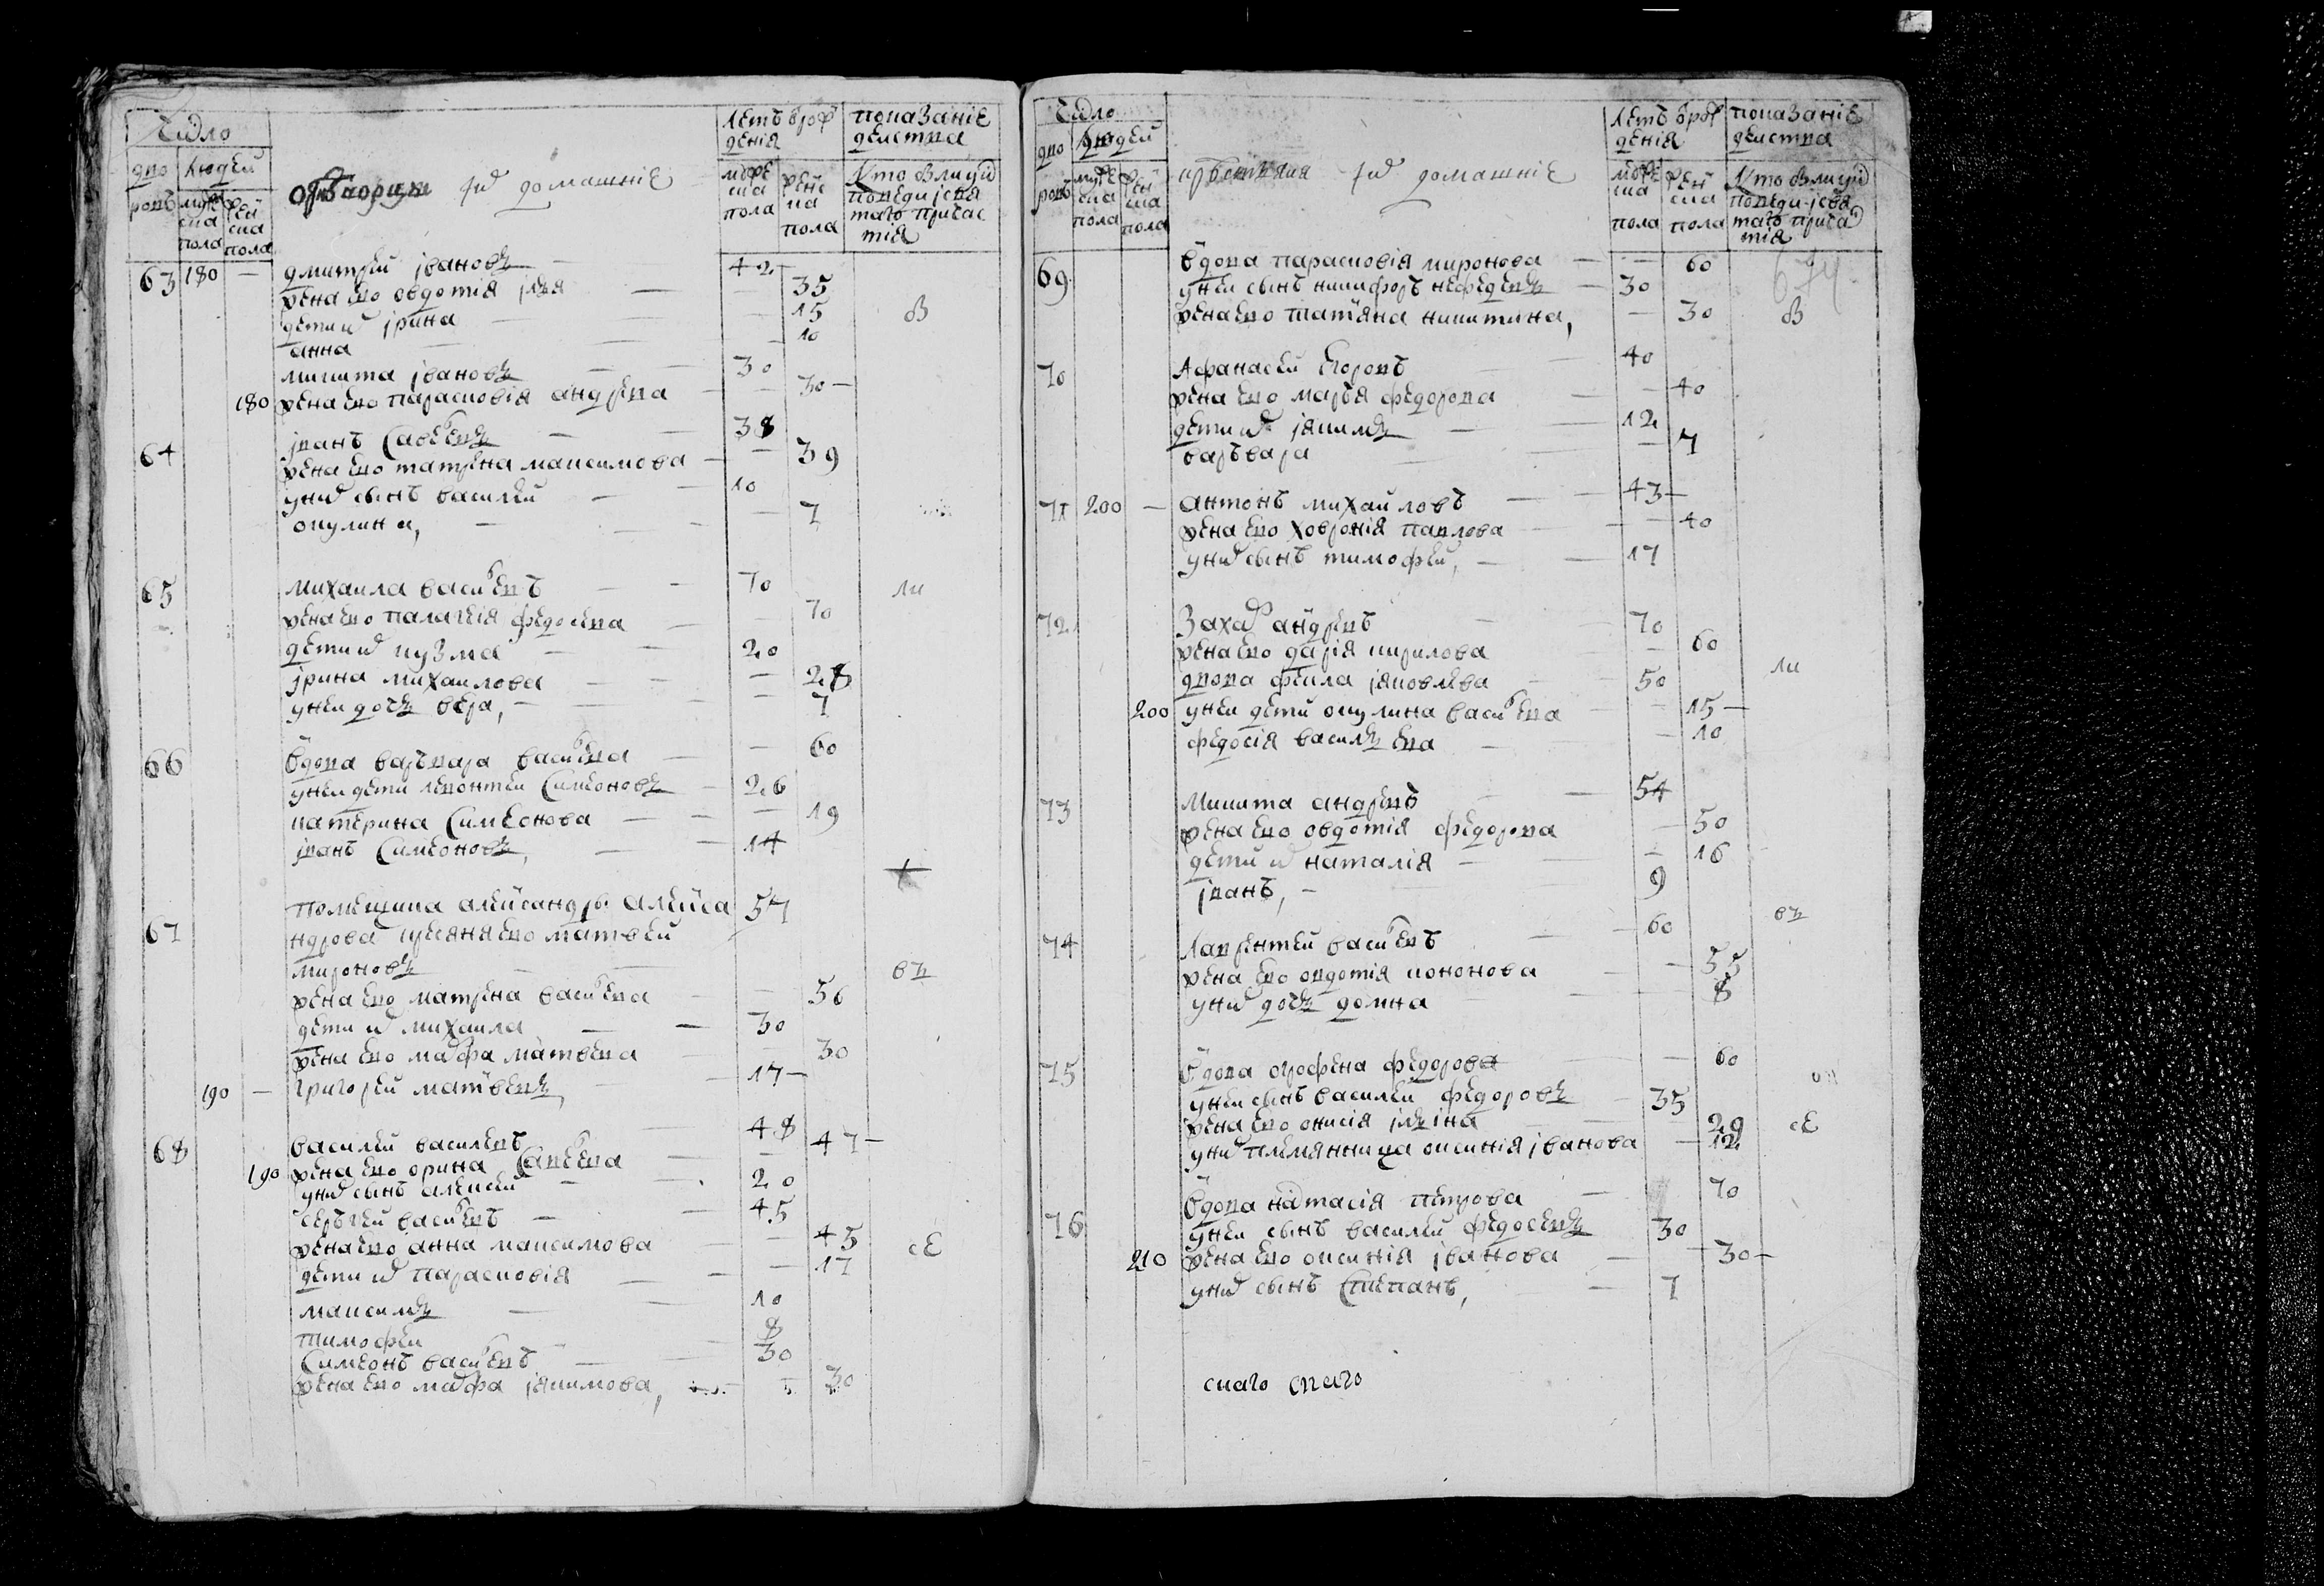 Число
дво
ровъ
людей
муже
ска
пола
жен
ска
пола
их домашние
летъ врож
дения
муже
ска
пола
женс
ка
пола
показание
действа
Кто в лицах
поведи и свя
таго причас
тия
63 180 — дмитрей iвановъ — 42
жена ево овдотия — 35
дети их iрина — 15 в
анна — 10
никита iвановъ — 30
180 жена ево парасковiя андреева — 30 —
64 iванъ Савельевъ — 38
жена ево матрена максимова — 39
у них сынъ василей — 10
окулина, — 7
65 михаила васильевъ — 70 ли
жена ево палагея федосеева — 70
дети их кузма — 20
iрина михаилова — 28
у ней дочь вера, — 7
66 вдова варъвара васильева — 60
у ней дети левонтей Симеоновъ — 26
катерина Симеонова — 19
iванъ Симеоновъ, — 14
67 помещика алеѯандра алеѯа 57
ндрова крестьяня ево матвей
мироновъ
жена ево матрена васильева — 56
дети их михаила — 30
жена ево марфа матвеева — 30
190 — григорей матвеевъ, — 17 —
68 василей василевъ — 48
190 жена ево орина Савельева — 47 —
у них сынъ алексей — 20
серъгей васильевъ — 45
жена ево анна максимова — 45 се
дети их парасковiя — 17
максимъ — 10
тимофей 8
Симеонъ васильевъ — 30
жена ево марфа iякимова, — 30
Число
дво
ровъ
людей
муже
ска
пола
жен
ска
пола
их домашние
летъ врож
дения
муже
ска
пола
жен
ска
пола
показание
действа
Кто в лицах
поведи и свя
таго прича
тия
674
69 вдова парасковiя миронова — 60
у ней сынъ никифоръ нефедевъ — 30
жена ево татияна никитина, — 30 в
70 Афанасей Егоровъ 40
жена ево маръя федорова — 40
дети их iякимъ — 12
варъвара — 7
71 200 — антонъ михаиловъ — 43 —
жена ево ховрония павлова — 40
у них сынъ тимофей, — 17
72 Захар андреевъ — 70
жена ево дария кирилова — 60
вдова фекла iяковлева — 50 ли
200 у ней дети окулина васильева — 15 —
федосия василъева — 10
73 никита андреевъ — 54
жена ево овдотия федорова — 50
дети их наталия — 16
iванъ, — 9
74 Лаврентей васильевъ — 60
жена ево овдотия кононова — 55
у них дочь домна — 8
75 вдова огрофена федорова — 60
у ней сынъ василей федоровъ — 35
жена ево онисия iльiна — 29 се
у них племянница оксиния iванова — 12
76 вдова настасия петрова — 70
у ней сынъ василей федосеевъ 30
210 жена ево оксиния iванова — 30 —
у них сынъ Стиепанъ, — 7